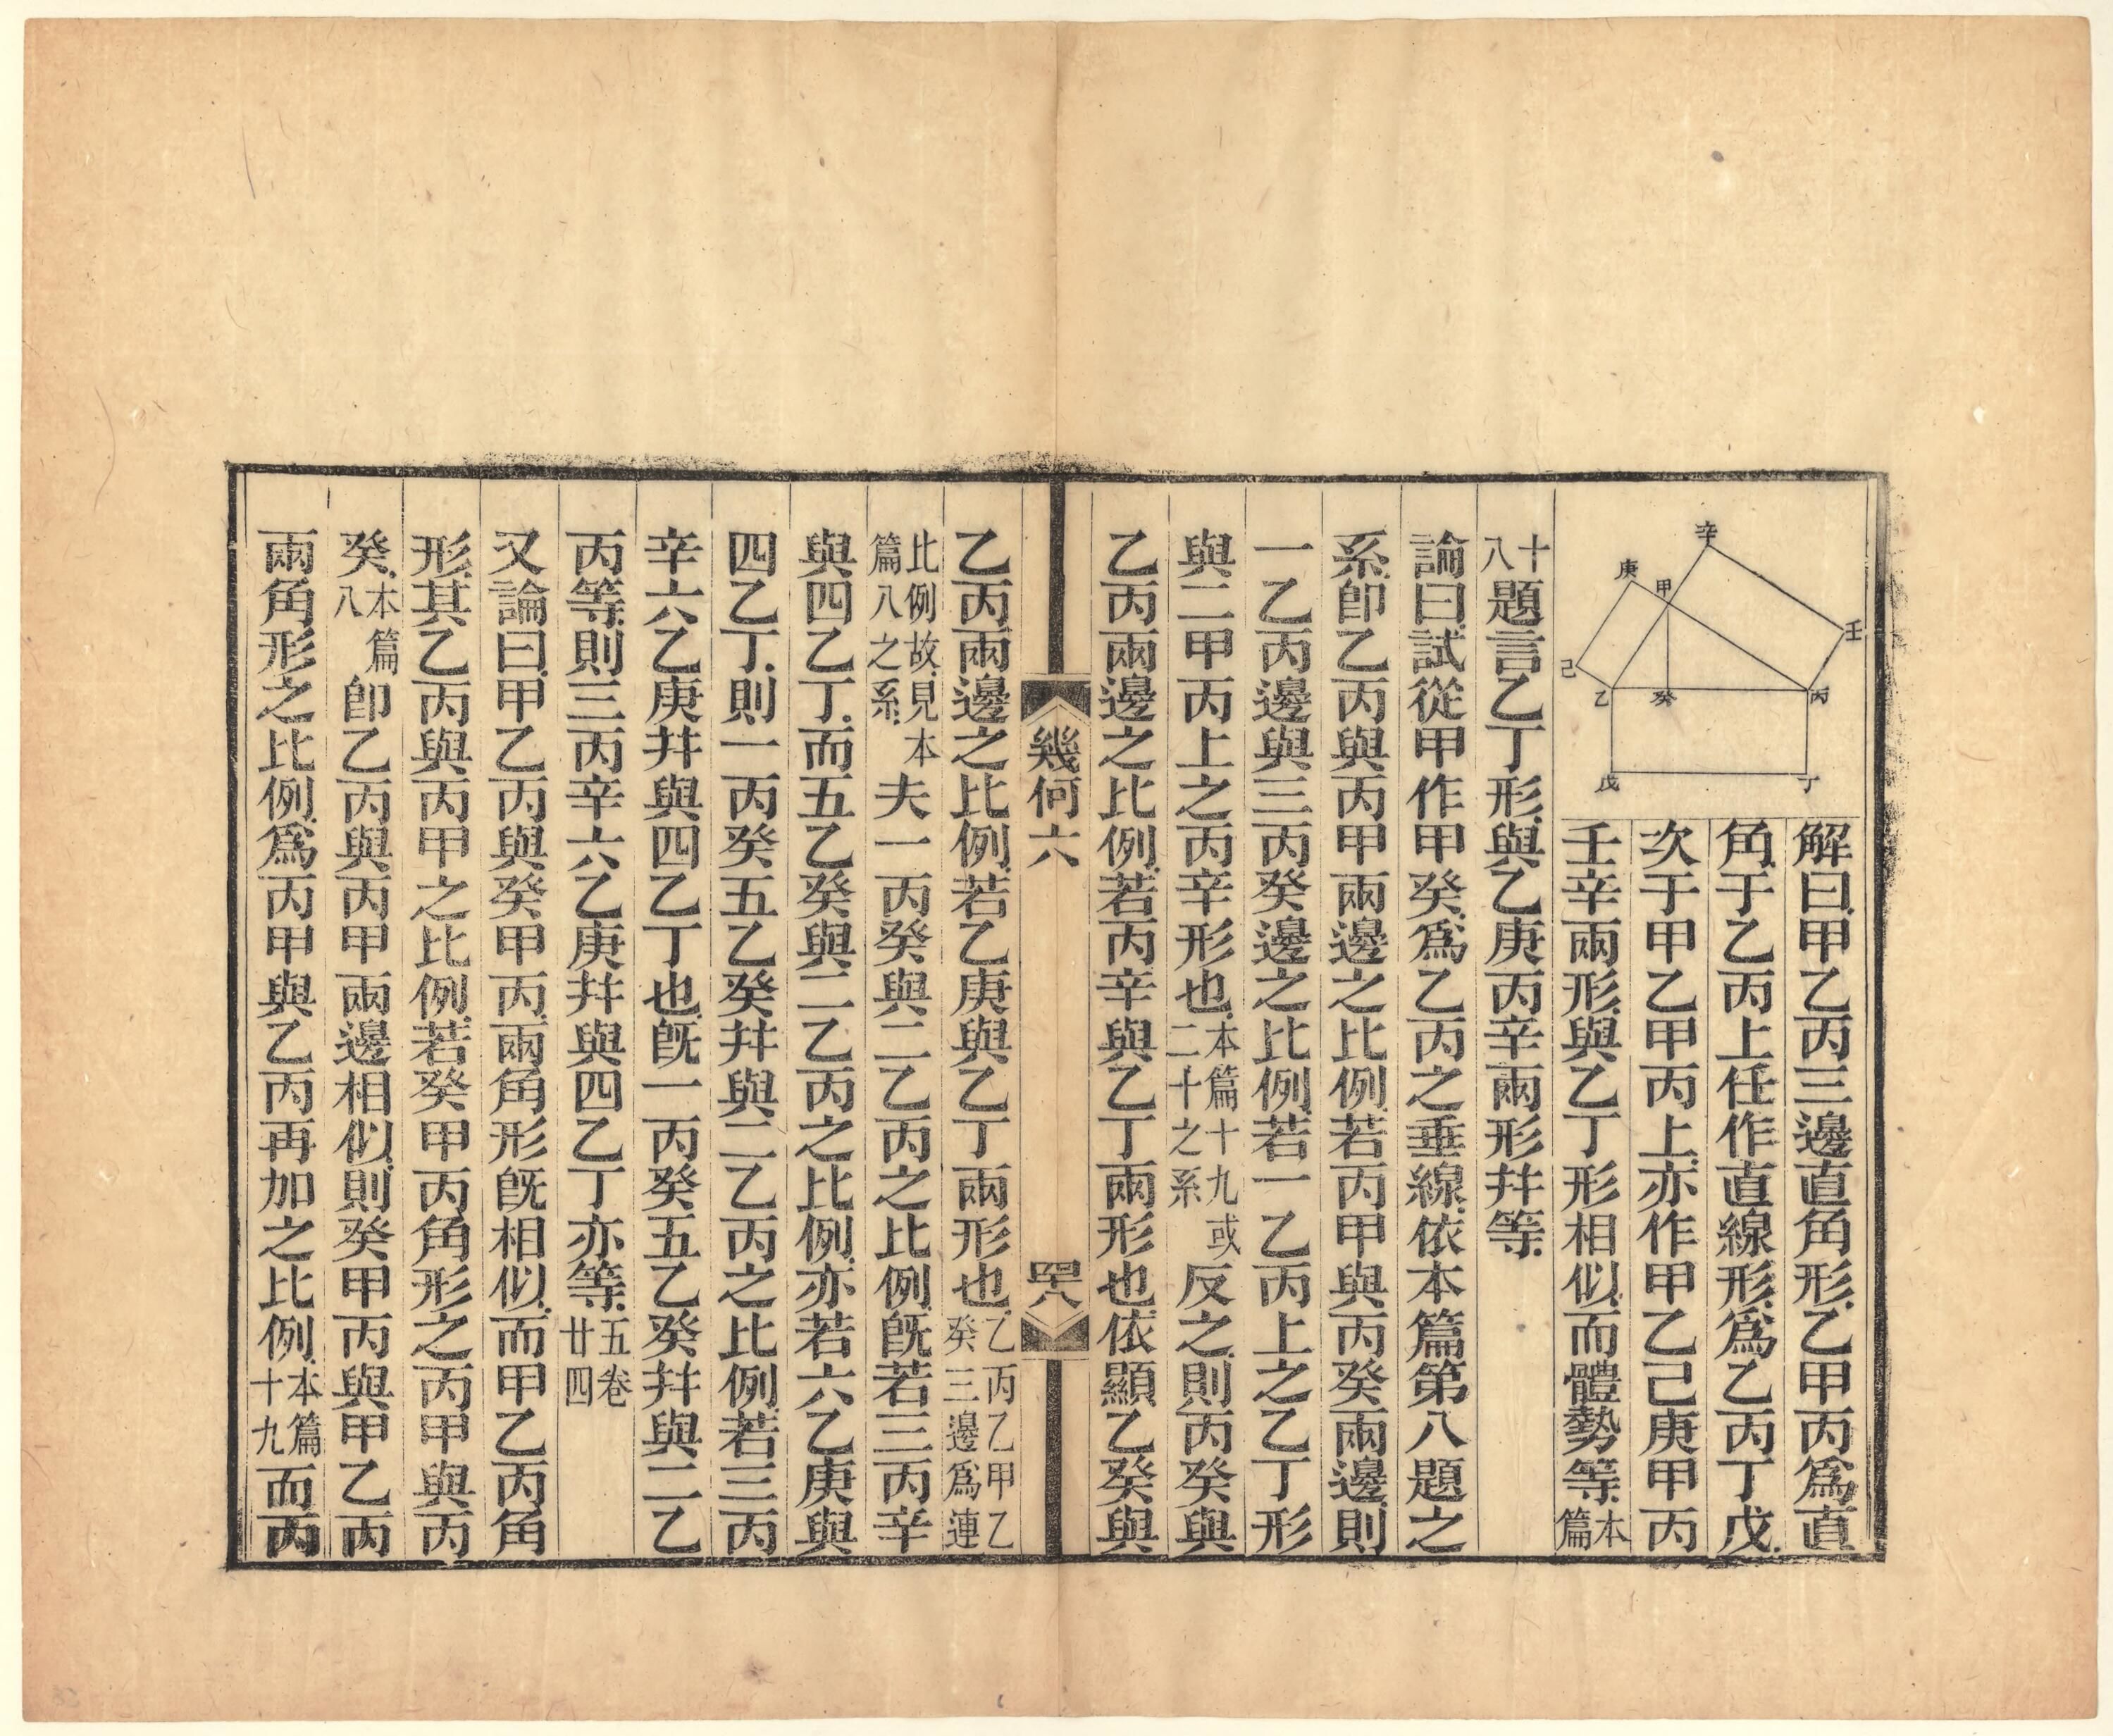 辛
庚
甲
壬
己
乙
癸
丙
戊
丁
解曰甲乙丙三邊直角形乙甲丙爲直
角于乙丙上任作直線形爲乙丙丁戊
次于甲乙甲丙上亦作甲乙己庚甲丙
壬辛兩形與乙丁形相似而體勢等本篇
十八題言乙丁形與乙庚丙辛兩形幷等
論曰試從甲作甲癸爲乙丙之垂線依本篇第八題之
系卽乙丙與丙甲兩邊之比例若丙甲與丙癸兩邊則
一乙丙邊與三丙癸邊之比例若一乙丙上之乙丁形
與二甲丙上之丙辛形也本篇十九或二十之系反之則丙癸與
乙丙兩邊之比例若丙辛與乙丁兩形也依顯乙癸與
幾何六
四八
乙丙兩邊之比例若乙庚與乙丁兩形也乙丙乙甲乙癸三邊爲連
比例故見本篇八之系夫一丙癸與二乙丙之比例旣若三丙辛
與四乙丁而五乙癸與二乙丙之比例亦若六乙庚與
四乙丁則一丙癸五乙癸幷與二乙丙之比例若三丙
辛六乙庚幷與四乙丁也旣一丙癸五乙癸幷與二乙
丙等則三丙辛六乙庚幷與四乙丁亦等五卷廿四
又論曰甲乙丙與癸甲丙兩角形旣相似而甲乙丙角
形其乙丙與丙甲之比例若癸甲丙角形之丙甲與丙
癸本篇八卽乙丙與丙甲兩邊相似則癸甲丙與甲乙丙
兩角形之比例爲丙甲與乙丙再加之比例本篇十九而丙